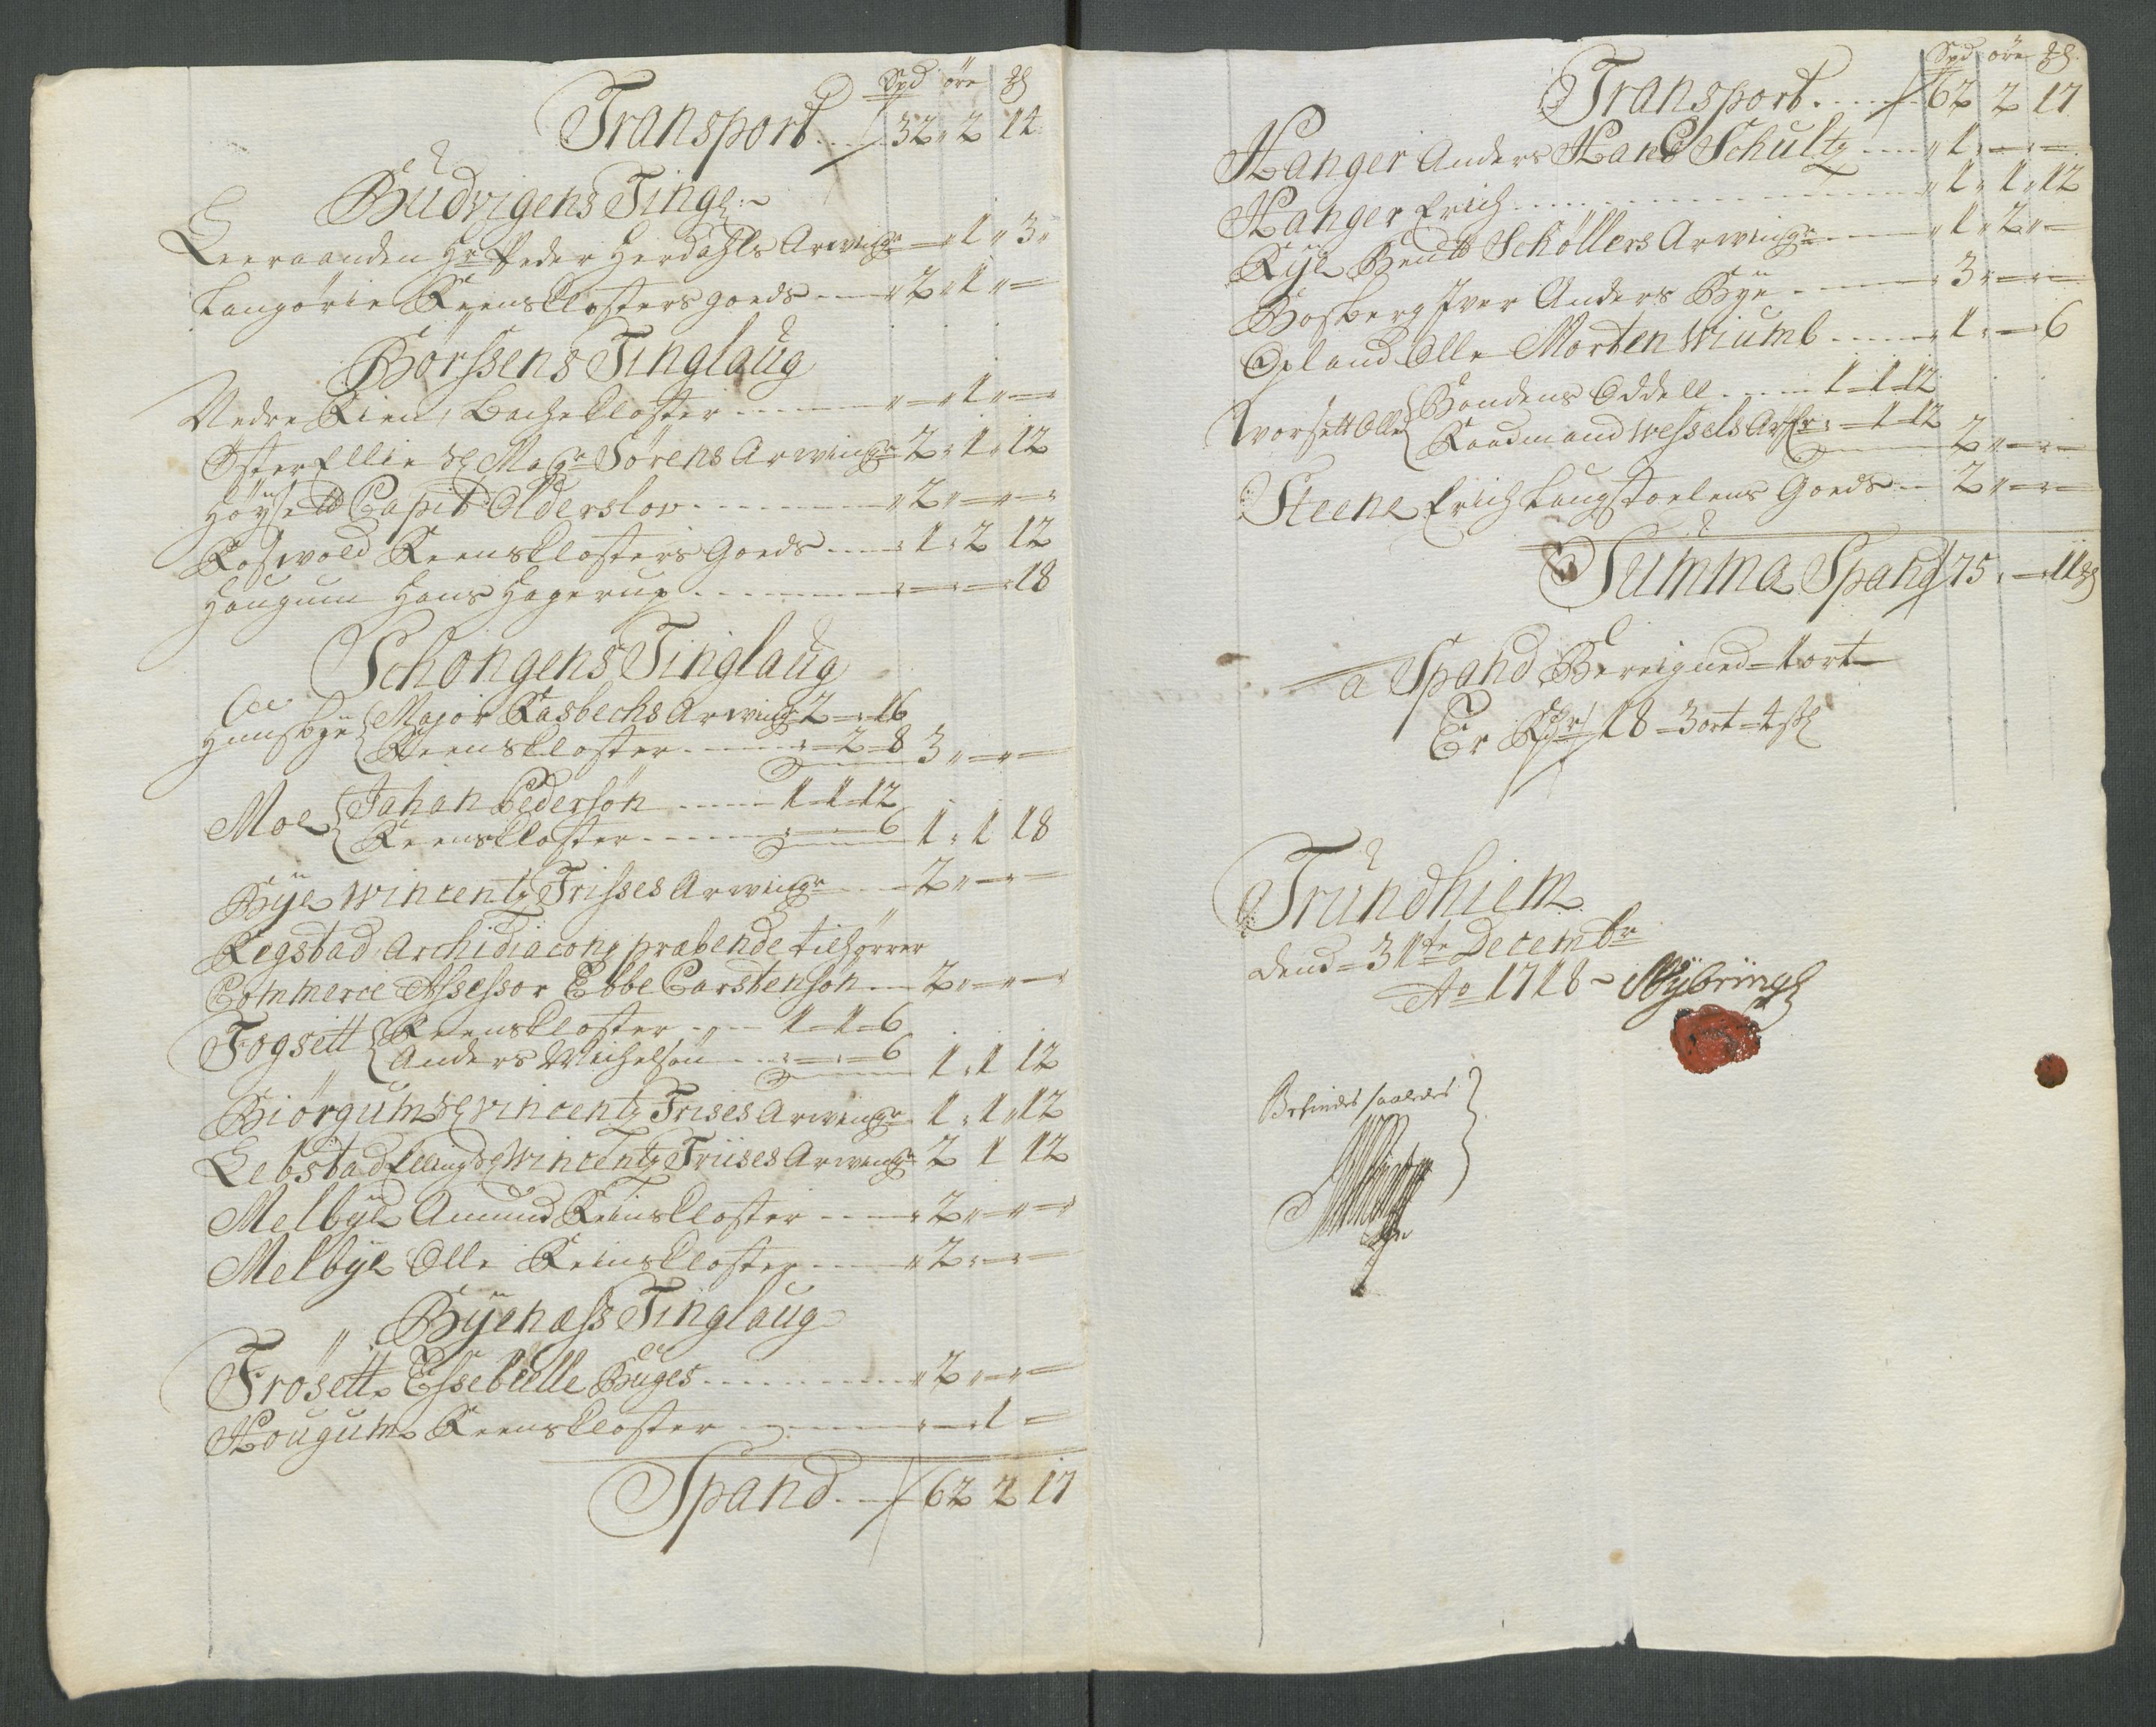 Spd öre ₰
Transport ..... 32 „ 2 14
Büdvigens Tingl:
Leeraanden Hr Peder Herdahls Arwinger — „ 1 „ 3 „
Langörie Reensklosters goeds ---- „ 2 „ 1 „ —
Börssens Tinglaug
Nedre Rien, Bache kloster ------ „ — „ 1 „ —
Öster Ellie Sl Mag Sörens Arwinger 2 „ 1 „ 12
Höysett Capit Olderslov --------- „ 2 „ — „ —
Roswold Reensklosters Goeds ---- „ 1 „ 2 12
Haugum Hans Hagerup -------- — „ — „ 18
Schongens Tinglaug
Huusbye { Major Kasbechs Arwing 2 — „ 16
Reenskloster ------ „ — 2 — 8 3 „ — „ —
Moe { Johan Pedersön ----- 1 — 1 — 12
Reenskloster ------- „ — 6 1 „ 1 18
Bye Wincentz Frisses Arwinger ---- 2 „ — „ —
Regstad Archidiaconj præbende tilhörrer
Commerce Assessor Ebbe Carstensön --- 2 „ — „ —
Fogsett { Reenskloster - „ -- 1 — 1 — 6
Anders Michelsön --- „ — „ — 6 1 „ 1 12
Biörgum Sl Vincentz Frises Arwinger 1 „ 1 „ 12
Lebstad Elling Sl Wincentz Friises Arwinger 2 1 12
Melbye Amund Reinskloster ---- „ 2 „ — „ —
Melbye Olle Reinskloster ---- „ 2 „ — „ —
Byenæss Tinglaug
Frösett Essebielle Buges ---------- „ 2 „ — „ —
Hougum Reenskloster -------- „ — „ 1 —
Spand -- 62 2 17
Spd öre ₰
Transport ..... 62 2 17
Hanger Anders Hans Schultz ---- „ 1 „ — „ —
Hanger Erich ........... „ 1 „ 1 „ 12
Rye Bendt Schöllers Arwinger ---- „ 1 „ 2 „ —
Bosberg Iver Anders Bye ------ „ 3 „ — „ —
Opland Olle Morten Wiumb ----- „ 1 „ — „ 6
Worsett Olle { Bondens Oddell ---- 1 — 1 — 12
Raadmand Wessels Arfr „ — 1 — 12 2 „ — „ —
Steene Erich Laugstoelens Goeds -- 2 „ — „ —
Summa Spand 75 „ — „ 11 ₰
a Spand Bereigned — 1 ort —
Er Rdr 18 — 3 ort — 4 s
Trundhiem
dend — 31te Decembr
Ao 1718 — Nybringh
Befindes saaledes